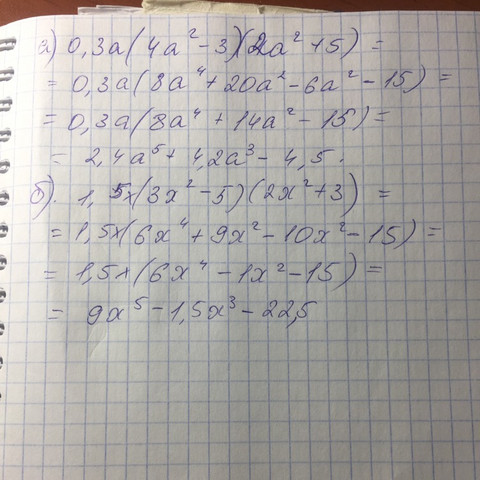 а) 0,3a(4a² - 3)(2a² + 5) =
= 0,3a(8a⁴ + 20a² - 6a² - 15) =
= 0,3a(8a⁴ + 14a² - 15) =
= 2,4a⁵ + 4,2a³ - 4,5.
б). 1,5x(3x² - 5)(2x² + 3) =
= 1,5x(6x⁴ + 9x² - 10x² - 15) =
= 1,5x(6x⁴ - 1x² - 15) =
= 9x⁵ - 1,5x³ - 22,5